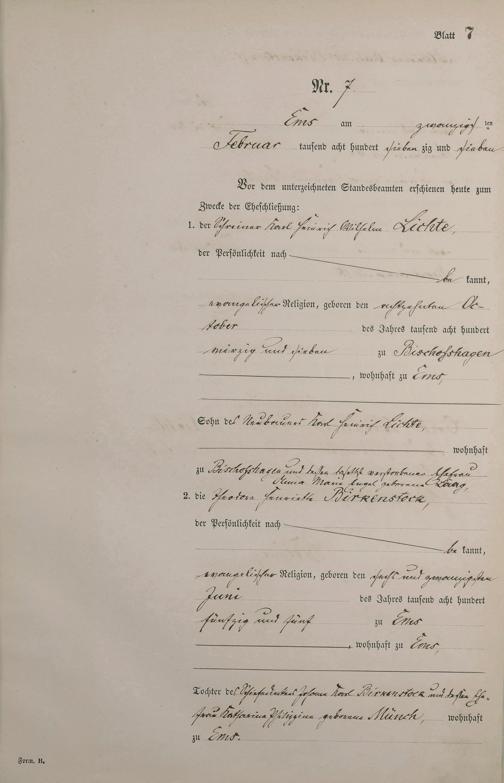 Blatt 7
Nr. 7
Ems am zwanzigsten
Februar tausend acht hundert siebenzig und sieben
Vor dem unterzeichneten Standesbeamten erschienen heute zum
Zwecke der Eheschließung:
1. der Schreiner Karl Heinrich Wilhelm Lichte,
der Persönlichkeit nach
bekannt,
evangelischer Religion, geboren den achtzehnten Oc-
tober des Jahres tausend acht hundert
vierzig und sieben zu Bischofshagen
, wohnhaft zu Ems,
Sohn des Neubauers Karl Heinrich Lichte,
wohnhaft
zu Bischofshagen und dessen daselbst verstorbenen Ehefrau
Anna Marie Engel geborene
2. die Theodore Henriette Birkenstock,
der Persönlichkeit nach
bekannt,
evangelischer Religion, geboren den sechs und zwanzigsten
Juni des Jahres tausend acht hundert
fünfzig und fünf zu Ems
, wohnhaft zu Ems,
Tochter des Johann Karl Birkenstock und dessen Ehe-
frau Katharina Philippine geborene Münch, wohnhaft
zu Ems.
Form. B.